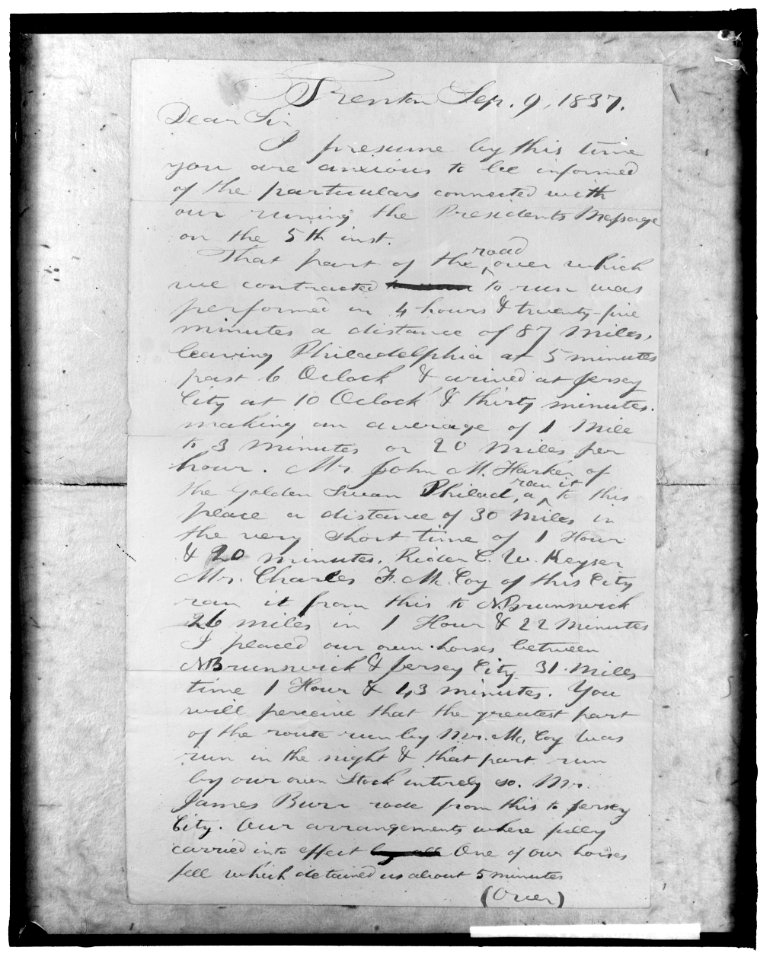 Trenton Sep. 9, 1837.
Dear Sir
I presume by this time
you are anxious to be informed
of the particulars connected with
our runing the Presidents Message
on the 5th inst.
That part of the road over which
we contracted to run was
performed in 4 hours & twenty-five
minutes a distance of 87 Miles,
leaving Philadelphia at 5 minutes
past 6 Oclock & arived at Jersey
City at 10 Oclock & thirty minutes.
making an average of 1 Mile
to 3 Minutes or 20 Miles per
hour. Mr. John M. Harker of
the Golden Swan Philad, ran it to this
place a distance of 30 Miles in
the very short time of 1 Hour
& 20 minutes. Rider C. W. Keyser
Mr. Charles F. Mc. Coy of this City
ran it from this to N.Brunswick
26 miles in 1 Hour & 22 Minutes
I placed our own horses between
N.Brunswick & Jersey City 31 Miles
time 1 Hour & 43 minutes. You
will perceive that the greatest part
of the route run by Mr. Mc. Coy was
run in the night & that part run
by our own Stock entirely so. Mr.
James Burr rode from this to Jersey
City. Our arrangements where fully
carried into effect One of our horses
fell which detained us about 5 minutes
(Over)